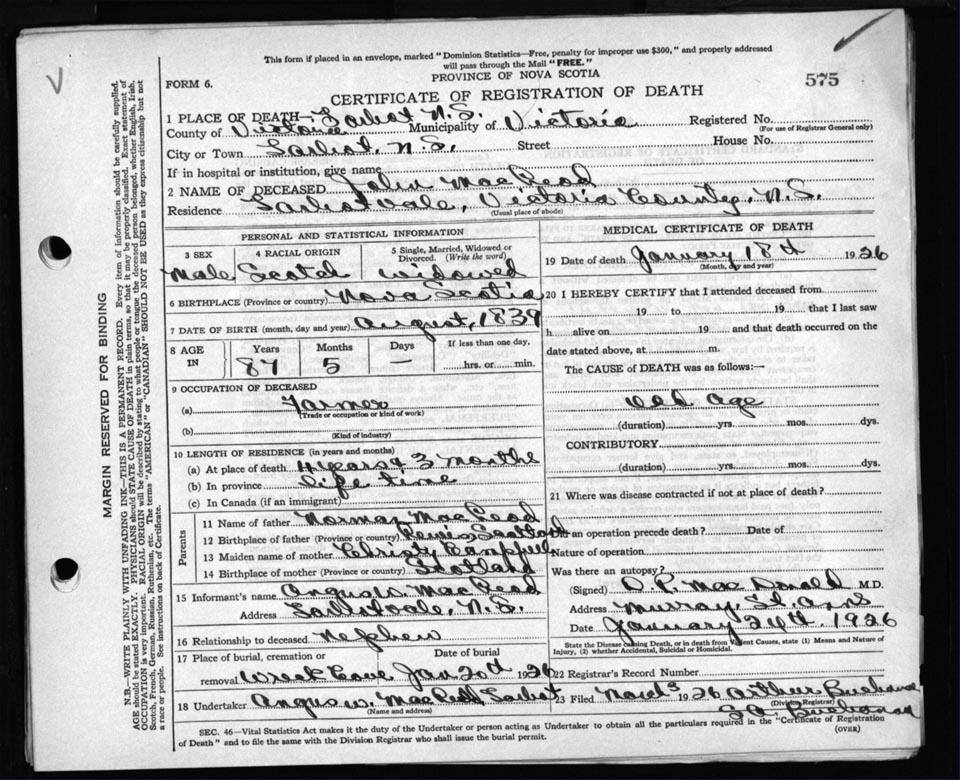 This form if placed in an envelope, marked "Dominion Statistics—Free, penalty for improper use $300," and properly addressed
will pass through the Mail "FREE."
PROVINCE OF NOVA SCOTIA
FORM 6.
575
CERTIFICATE OF REGISTRATION OF DEATH
1 PLACE OF DEATH— Tarbot N.S.
County of Victoria Municipality of Victoria Registered No.
(For use of Registrar General only)
City or Town Tarbot, N.S. Street House No.
If in hospital or institution, give name
2 NAME OF DECEASED John MacLeod
Residence Tarbotvale, Victoria County, N.S.
(Usual place of abode)
PERSONAL AND STATISTICAL INFORMATION
3 SEX 4 RACIAL ORIGIN 5 Single, Married, Widowed or
Divorced. (Write the word)
Male Scotch widowed
6 BIRTHPLACE (Province or country) Nova Scotia
7 DATE OF BIRTH (month, day and year) August, 1839
8 AGE IN Years Months Days If less than one day,
5 — hrs. or min.
9 OCCUPATION OF DECEASED
(a) Farmer
(Trade or occupation or kind of work)
(b)
(Kind of industry)
10 LENGTH OF RESIDENCE (in years and months)
(a) At place of death 3 months
(b) In province life time
(c) In Canada (if an immigrant)
Parents
11 Name of father Norman MacLeod
12 Birthplace of father (Province or country) Lewis, Scotland
13 Maiden name of mother Christy
14 Birthplace of mother (Province or country) Scotland
15 Informant's name Angus W. MacLeod
Address Tarbotvale, N.S.
16 Relationship to deceased Nephew
17 Place of burial, cremation or Date of burial
removal Wreck Cove Jan 20th 1926
18 Undertaker Angus W. MacLeod Tarbot
(Name and address)
MEDICAL CERTIFICATE OF DEATH
19 Date of death January 18th 1926
(Month, day and year)
20 I HEREBY CERTIFY that I attended deceased from
19 to 19 that I last saw
h alive on 19 and that death occurred on the
date stated above, at m.
The CAUSE of DEATH was as follows:—
Old Age
(duration) yrs. mos. dys.
CONTRIBUTORY
(duration) yrs. mos. dys.
21 Where was disease contracted if not at place of death?
an operation precede death? Date of
Nature of operation
Was there an autopsy?
(Signed) D. P. MacDonald M.D.
Address Murray, St. Anns
Date January 24th, 1926
State the Disease causing Death, or in death from Violent Causes, state (1) Means and Nature of
Injury, (2) whether Accidental, Suicidal or Homicidal.
22 Registrar's Record Number
23 Filed 1926 Arthur Buchanan
(Division Registrar)
Buchanan
SEC. 46—Vital Statistics Act makes it the duty of the Undertaker or person acting as Undertaker to obtain all the particulars required in the "Certificate of Registration
of Death" and to file the same with the Division Registrar who shall issue the burial permit.
(OVER)
MARGIN RESERVED FOR BINDING
N.B.—WRITE PLAINLY WITH UNFADING INK—THIS IS A PERMANENT RECORD. Every item of information should be carefully supplied.
AGE should be stated EXACTLY. PHYSICIANS should STATE CAUSE OF DEATH in plain terms, so that it may be properly classified. Exact statement of
OCCUPATION is very important. RACIAL ORIGIN will be described by stating to what people or tongue the deceased person belonged, whether English, Irish,
Scotch, French, German, Russian, Ruthenian, etc. The terms "AMERICAN" or "CANADIAN" SHOULD NOT BE USED as they express citizenship but not
a race or people. See instructions on back of Certificate.